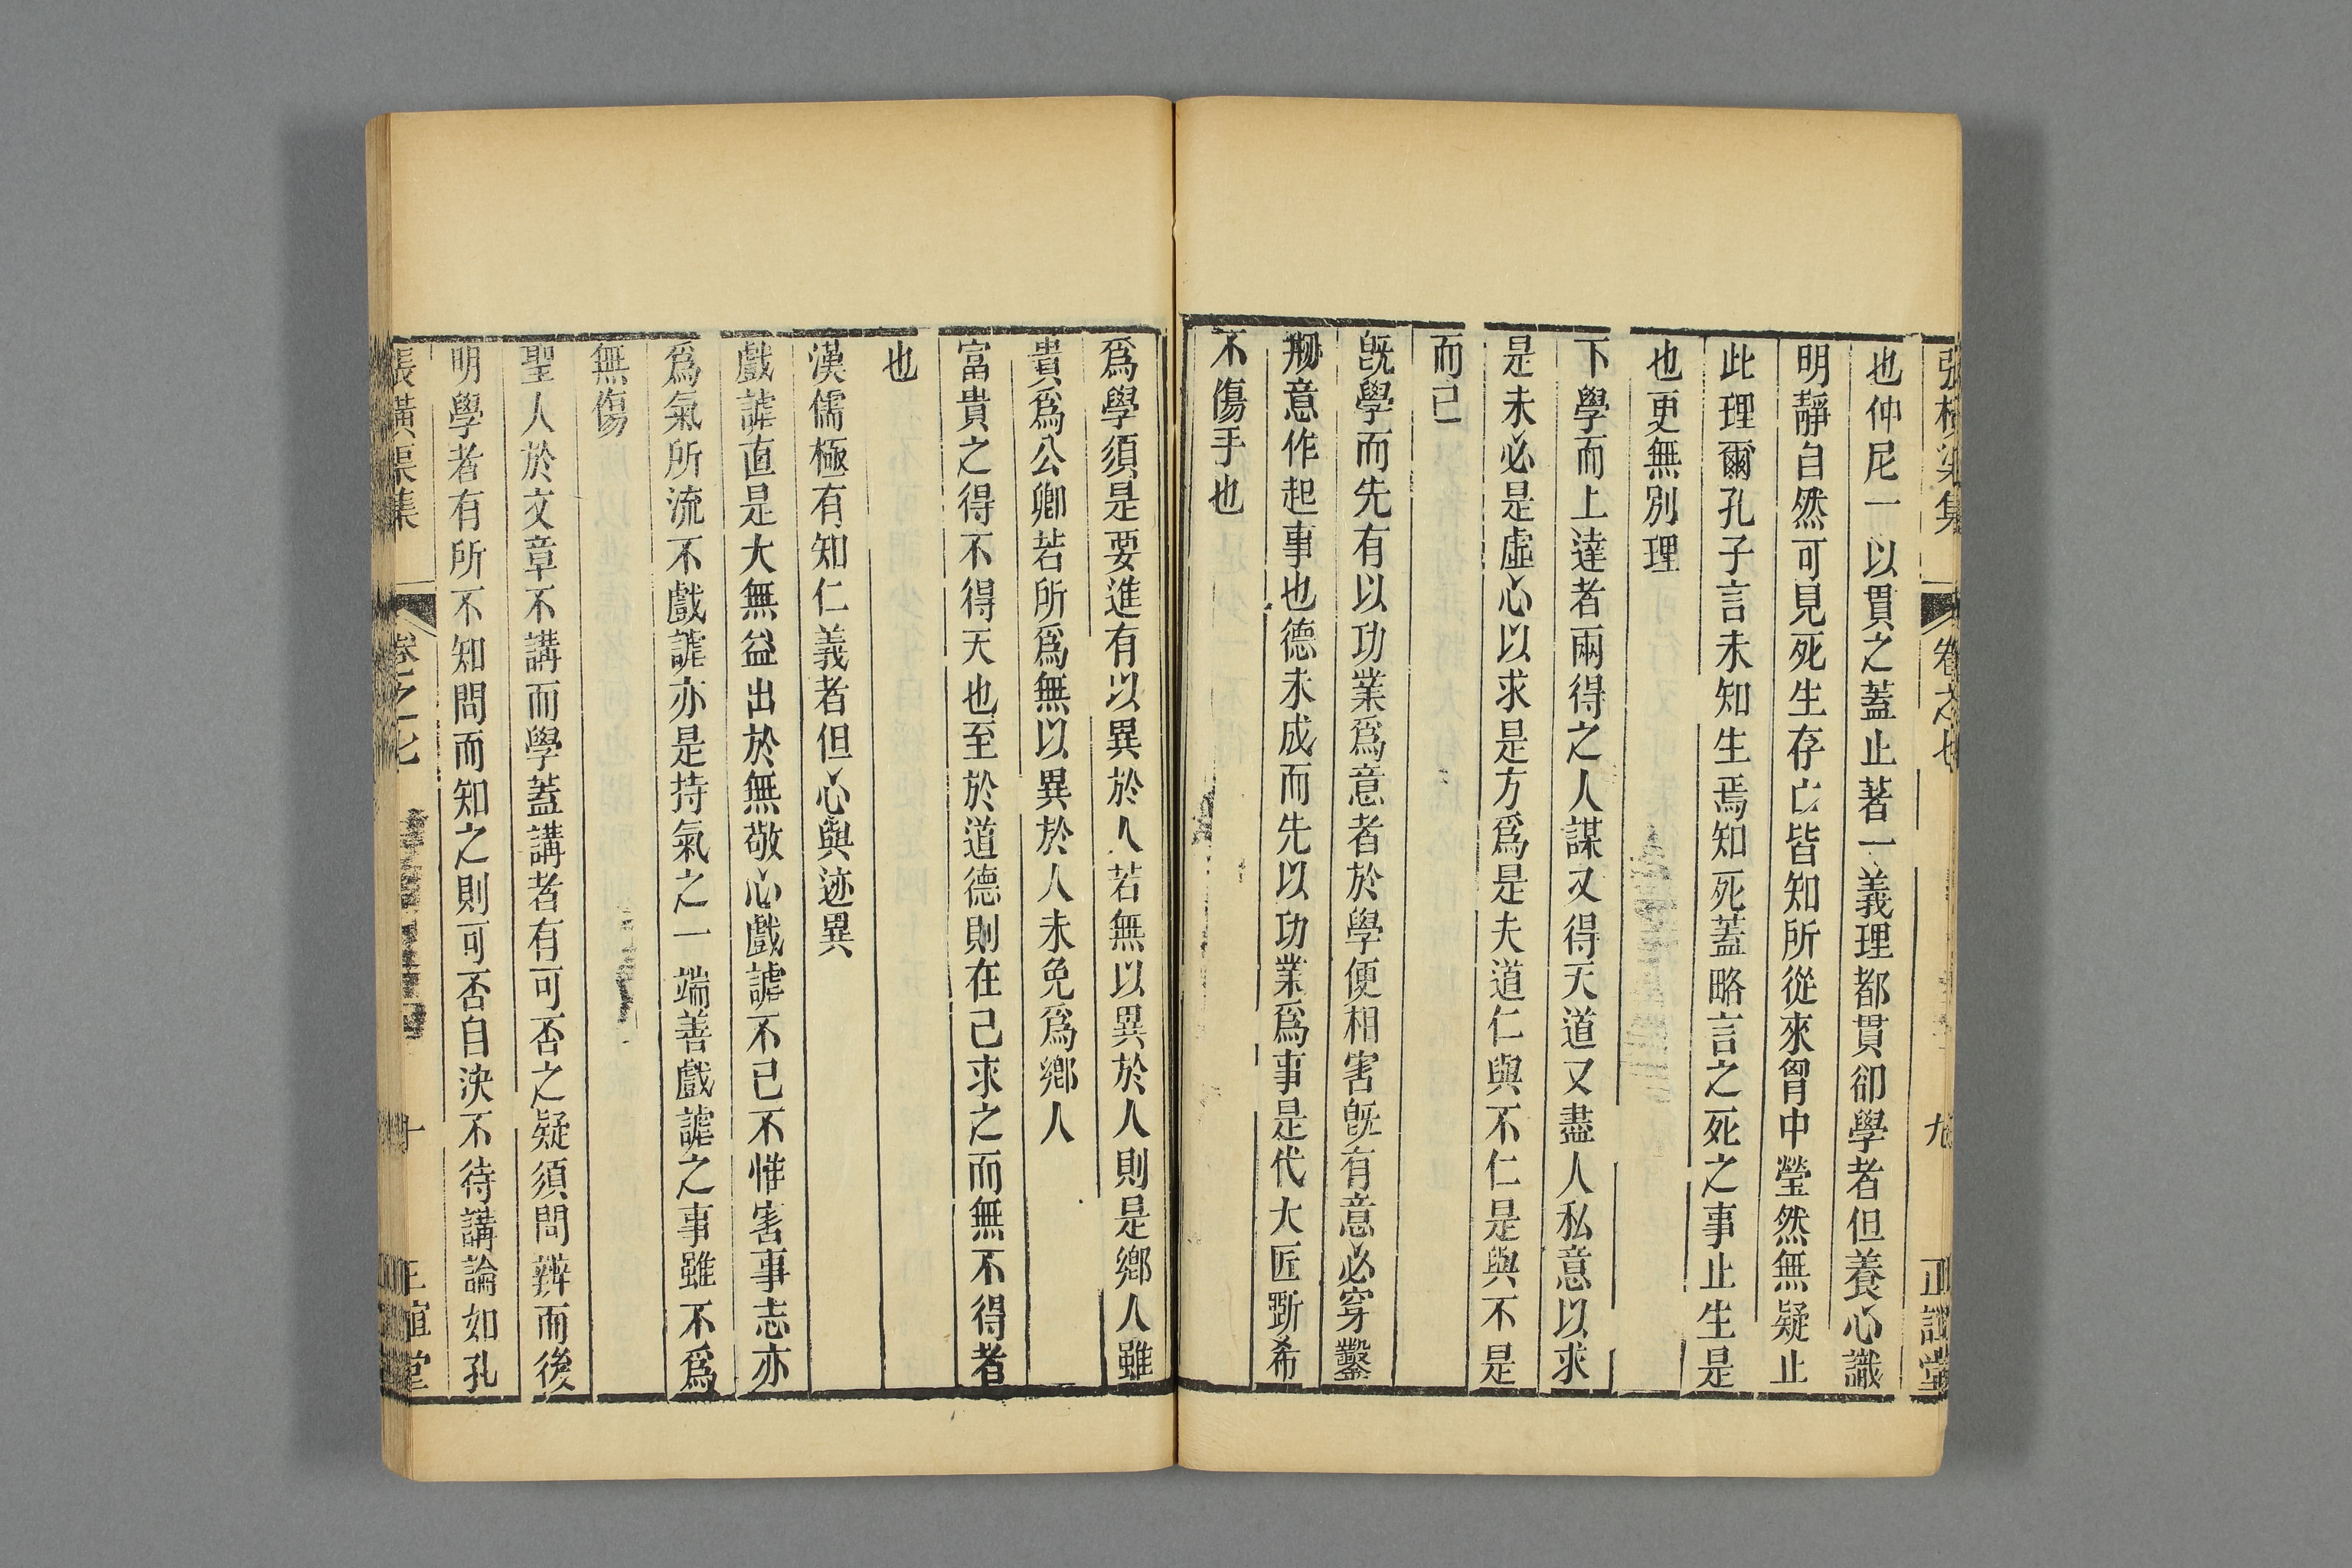 張橫渠集 卷之七 九 正誼堂
也仲尼一以貫之蓋止著一義理都貫卻學者但養心識
明靜自然可見死生存亡皆知所從來胷中瑩然無疑止
此理爾孔子言未知生焉知死蓋略言之死之事止生是
也更無別理
下學而上達者兩得之人謀又得天道又盡人私意以求
是未必是虛心以求是方爲是夫道仁與不仁是與不是
而已
旣學而先有以功業爲意者於學便相害旣有意必穿鑿
刱意作起事也德未成而先以功業爲事是代大匠斲希
不傷手也
爲學須是要進有以異於人若無以異於人則是鄉人雖
貴爲公卿若所爲無以異於人未免爲鄉人
富貴之得不得天也至於道德則在己求之而無不得者
也
漢儒極有知仁義者但心與迹異
戲謔直是大無益出於無敬心戲謔不已不惟害事志亦
爲氣所流不戲謔亦是持氣之一端善戲謔之事雖不爲
無傷
聖人於文章不講而學蓋講者有可否之疑須問辨而後
明學者有所不知問而知之則可否自決不待講論如孔
張橫渠集 卷之七 十 正誼堂